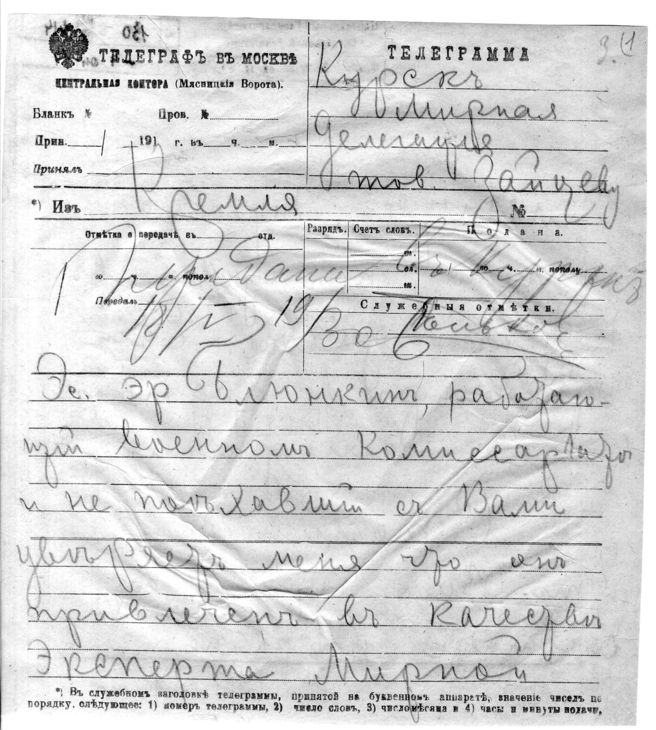 130
3. (1
ТЕЛЕГРАФЪ ВЪ МОСКВѢ
ЦЕНТРАЛЬНАЯ КОНТОРА (Мясницкія Ворота).
ТЕЛЕГРАММА
Курскъ
Бланкъ № Пров. №
Мирная
Прин. / 191 г. въ ч. м.
Делегация
Принялъ
тов. Зайцеву
*) Изъ Кремля №
Отмѣтка о передачѣ въ отд.
Разрядъ. Счетъ словъ. Подана.
го ч. м. пополу
Передалъ
Служебныя отмѣтки.
18/V 19/30
Эс. Эр Блюнкинъ, работаю-
щій Военномъ Комиссаріатѣ
и не поѣхавшій съ Вами
увѣряетъ меня что онъ
привлеченъ въ качествѣ
Эксперта Мирной
*) Въ служебномъ заголовкѣ телеграммы, принятой на буквенномъ аппаратѣ, значеніе чиселъ по
порядку, слѣдующее: 1) номеръ телеграммы, 2) число словъ, 3) число мѣсяца и 4) часы и минуты подачи,